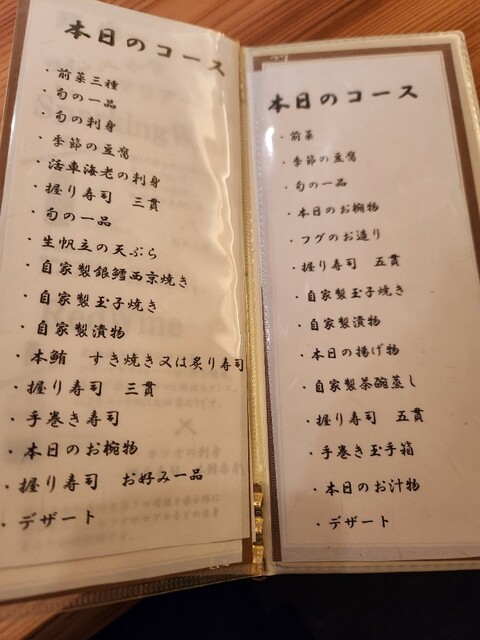 本日のコース
・前菜三種
・旬の一品
・旬の刺身
・季節の豆腐
・活車海老の刺身
・握り寿司　三貫
・旬の一品
・生帆立の天ぷら
・自家製銀鱈西京焼き
・自家製玉子焼き
・自家製漬物
・本鮪　すき焼き又は炙り寿司
・握り寿司　三貫
・手巻き寿司
・本日のお椀物
・握り寿司　お好み一品
・デザート
本日のコース
・前菜
・季節の豆腐
・旬の一品
・本日のお椀物
・フグのお造り
・握り寿司　五貫
・自家製玉子焼き
・自家製漬物
・本日の揚げ物
・自家製茶碗蒸し
・握り寿司　五貫
・手巻き玉手箱
・本日のお汁物
・デザート